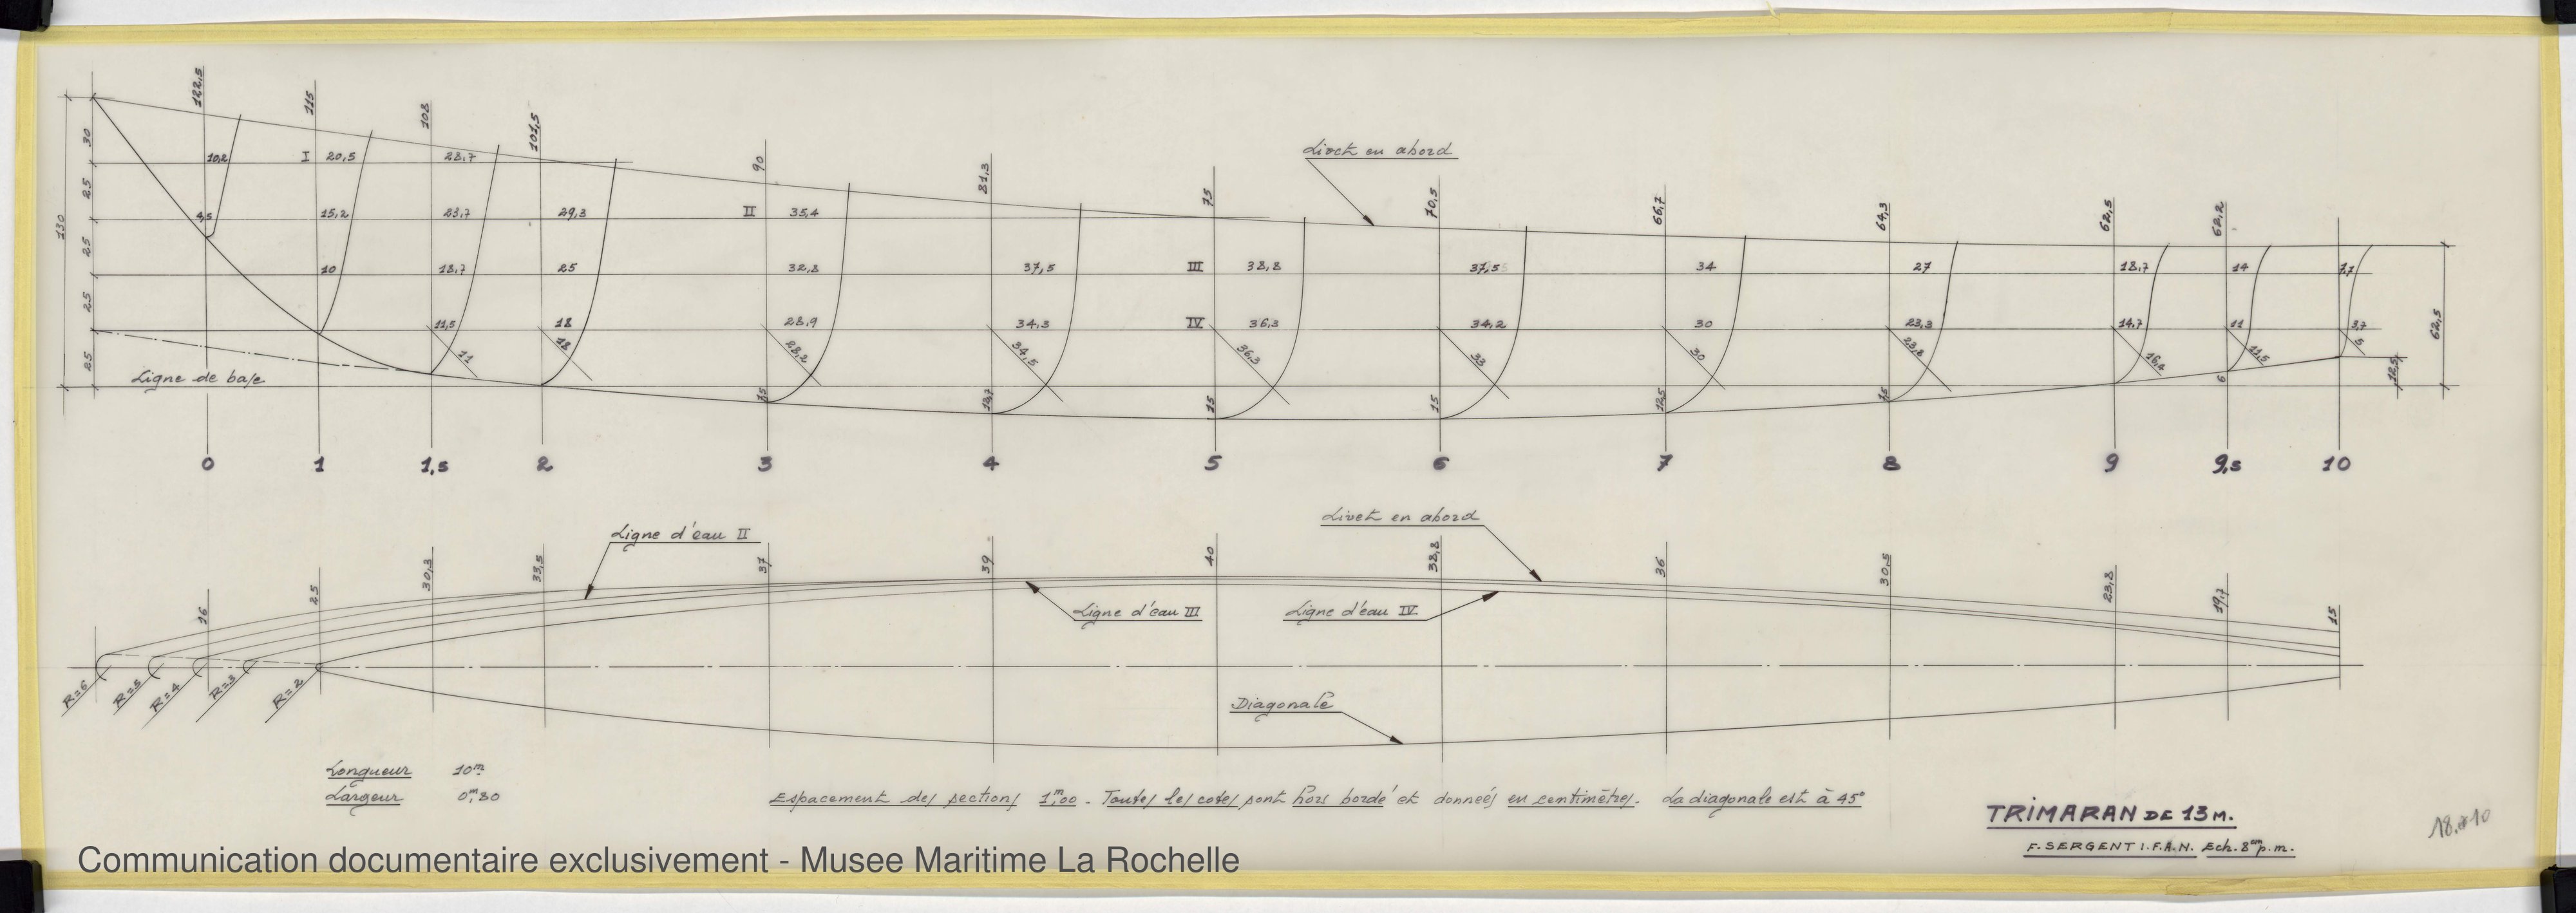 122,5 115 108 101,5 90 81,3 75 70,5 66,7 64,3 62,5 62,2
Livet en abord
30 10,2 I 20,5 28,7
25 4,5 15,2 23,7 29,3 II 35,4
130
25 10 18,7 25 32,8 37,5 III 38,8 37,5 34 27 18,7 14 7,7
25 11,5 18 28,9 34,3 IV 36,3 34,2 30 23,3 14,7 11 3,7
62,5
11 18 28,2 34,5 36,3 33 30 23,8 16,4 11,5 5
25 Ligne de base
15 15 12,5 15 6 12,5
0 1 1,5 2 3 4 5 6 7 8 9 9,5 10
Ligne d'eau II
Livet en abord
16 25 30,3 33,5 37 39 40 38,8 36 30,5 23,8 19,7 15
Ligne d'eau III
Ligne d'eau IV
R=6 R=5 R=4 R=3 R=2
Diagonale
Longueur 10m
Largeur 0m,80
Espacement des sections 1m,00 - Toutes les cotes sont hors bordé et données en centimètres. La diagonale est à 45°
TRIMARAN DE 13 M.
F. SERGENT I.F.A.N. Ech. 8cm p.m.
Communication documentaire exclusivement - Musee Maritime La Rochelle